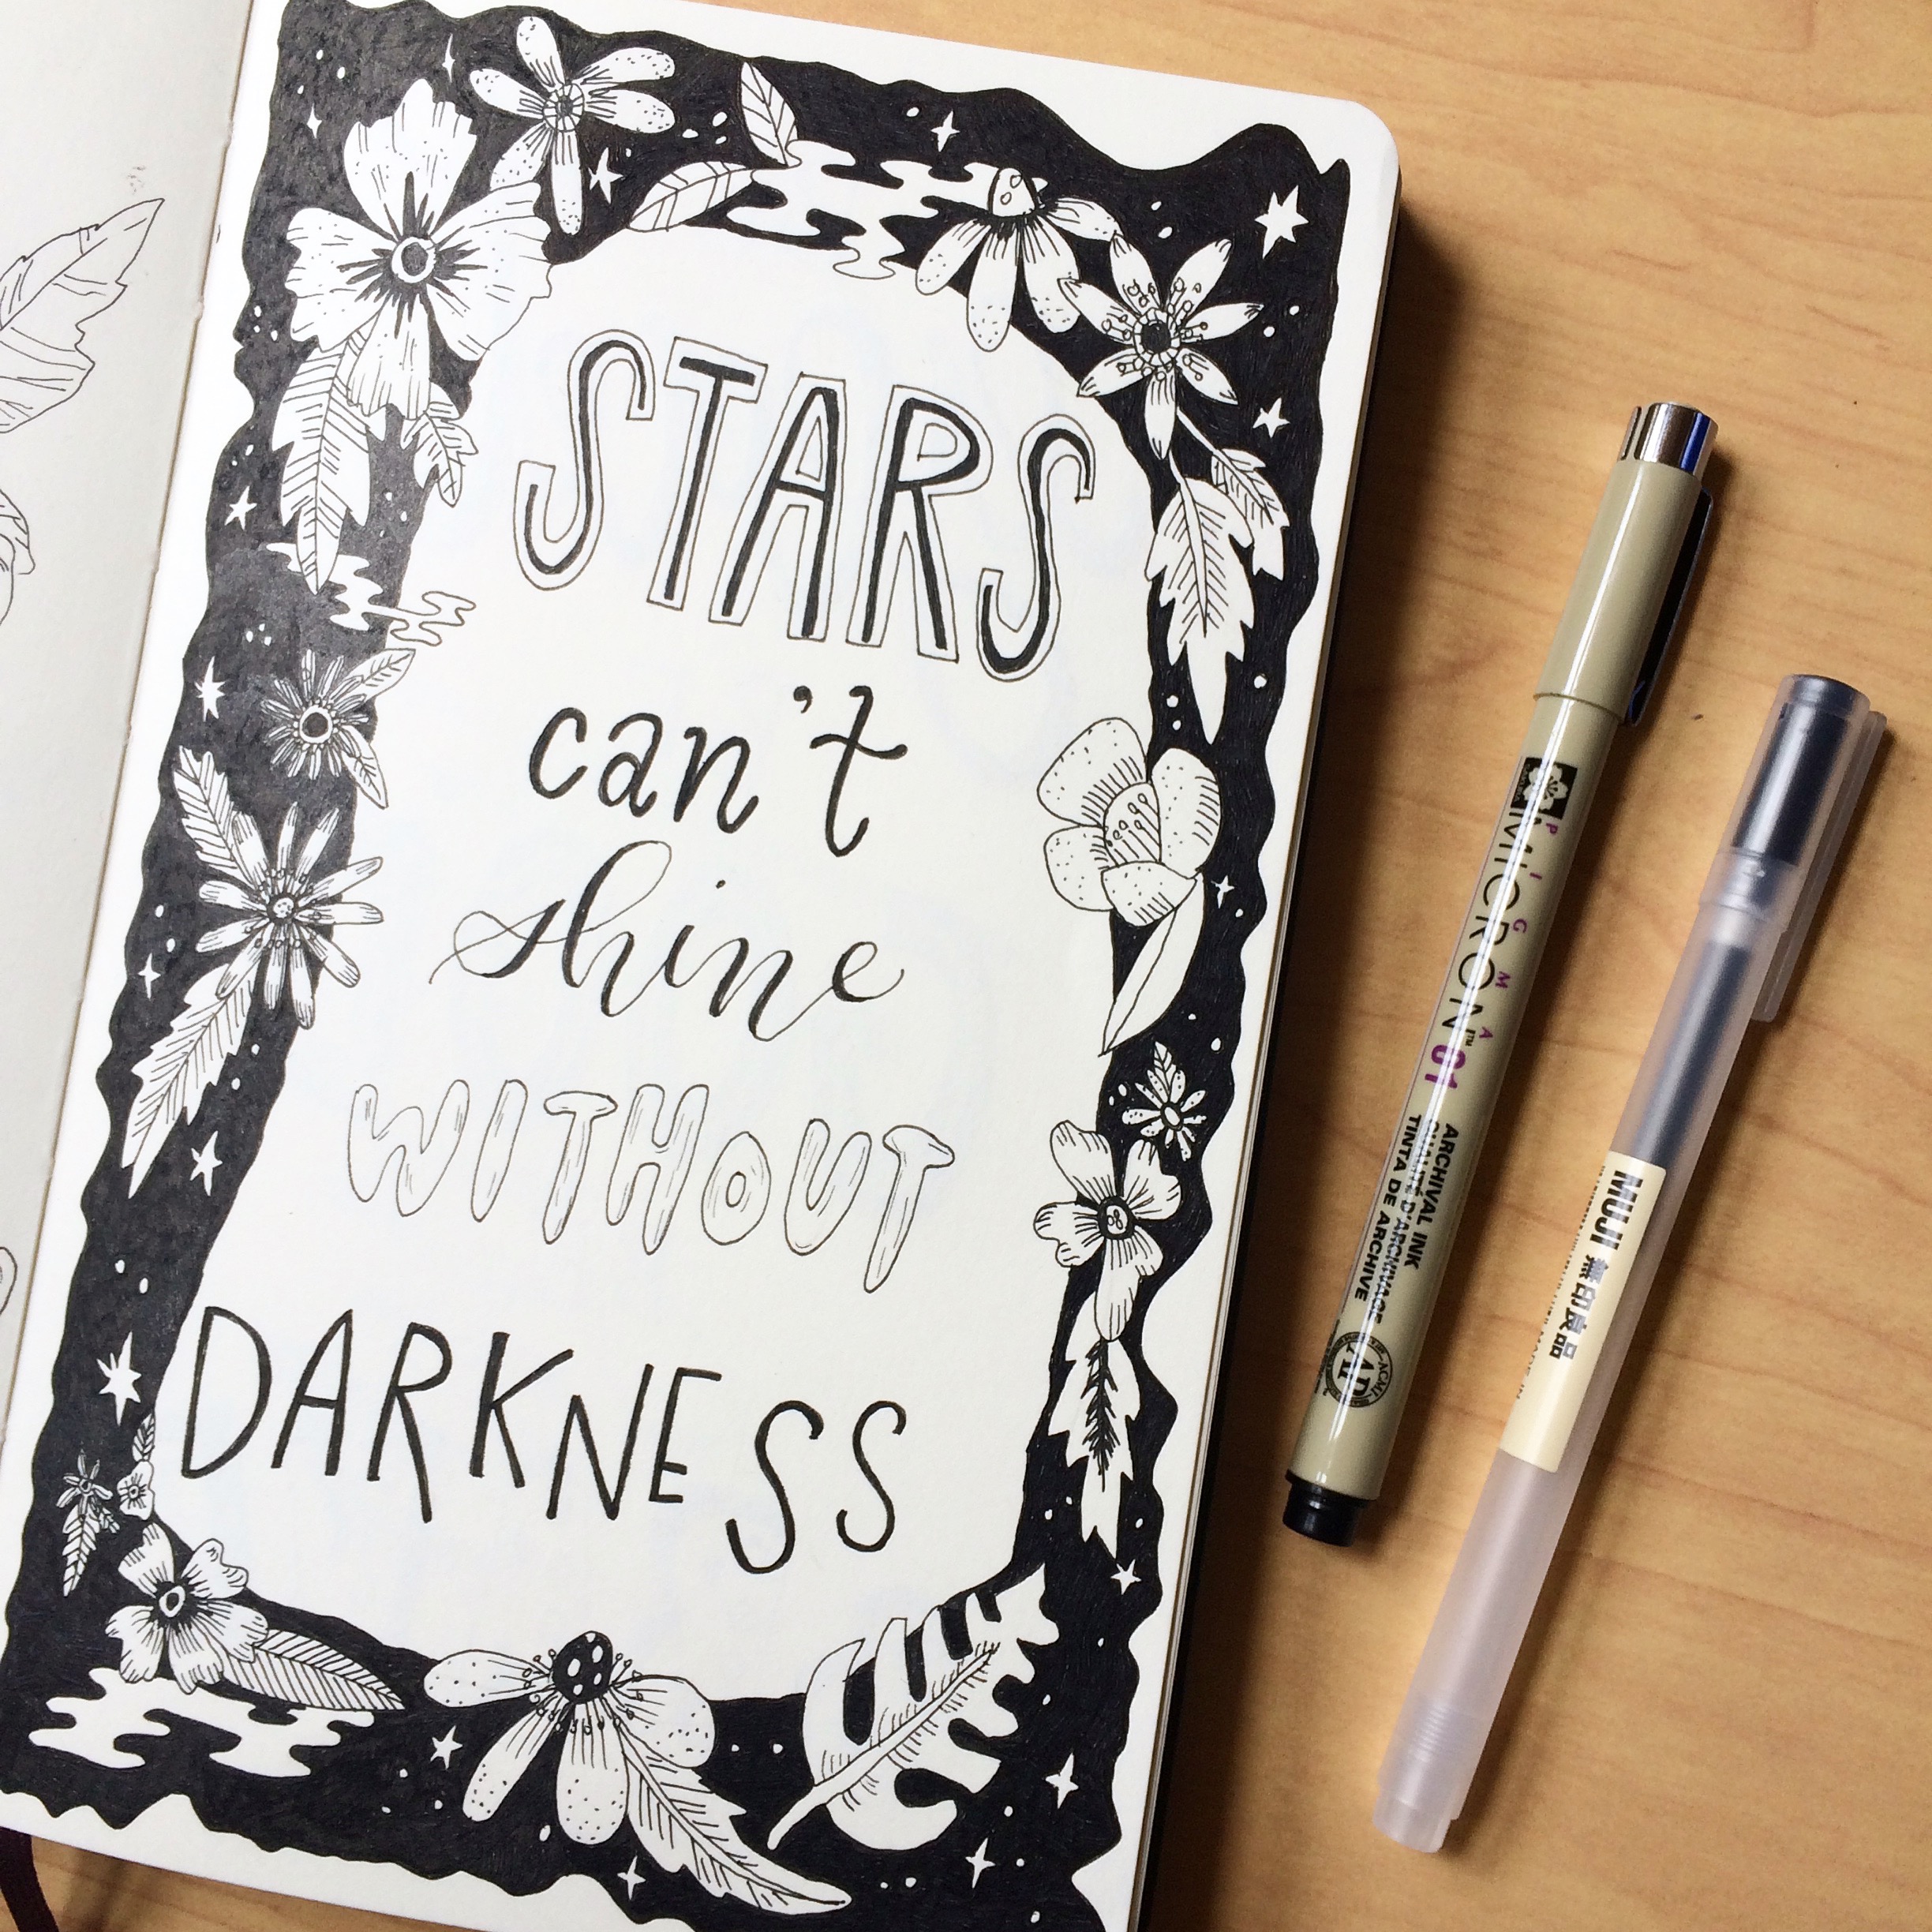 STARS
can't
shine
WITHOUT
DARKNESS
PIGMA
MICRON™ 01
ARCHIVAL INK
QUALITÉ D'ARCHIVAGE
TINTA DE ARCHIVE
MUJI 無印良品